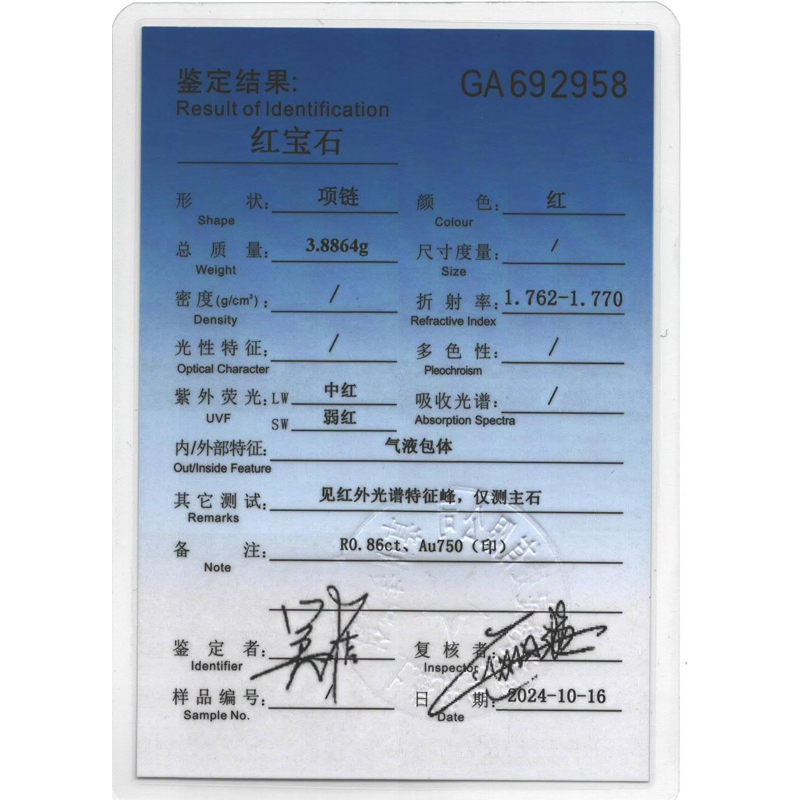 鉴定结果:
GA692958
Result of Identification
红宝石
形 状: 项链
Shape
颜 色: 红
Colour
总 质 量: 3.8864g
Weight
尺寸度量: /
Size
密度(g/cm³): /
Density
折 射 率: 1.762-1.770
Refractive Index
光性特征: /
Optical Character
多 色 性: /
Pleochroism
紫外荧光: LW 中红
UVF SW 弱红
吸收光谱: /
Absorption Spectra
内/外部特征: 气液包体
Out/Inside Feature
其它测试: 见红外光谱特征峰，仅测主石
Remarks
备 注: R0.86ct、Au750（印）
Note
鉴 定 者:
Identifier
复 核 者:
Inspector
样品编号:
Sample No.
日 期: 2024-10-16
Date